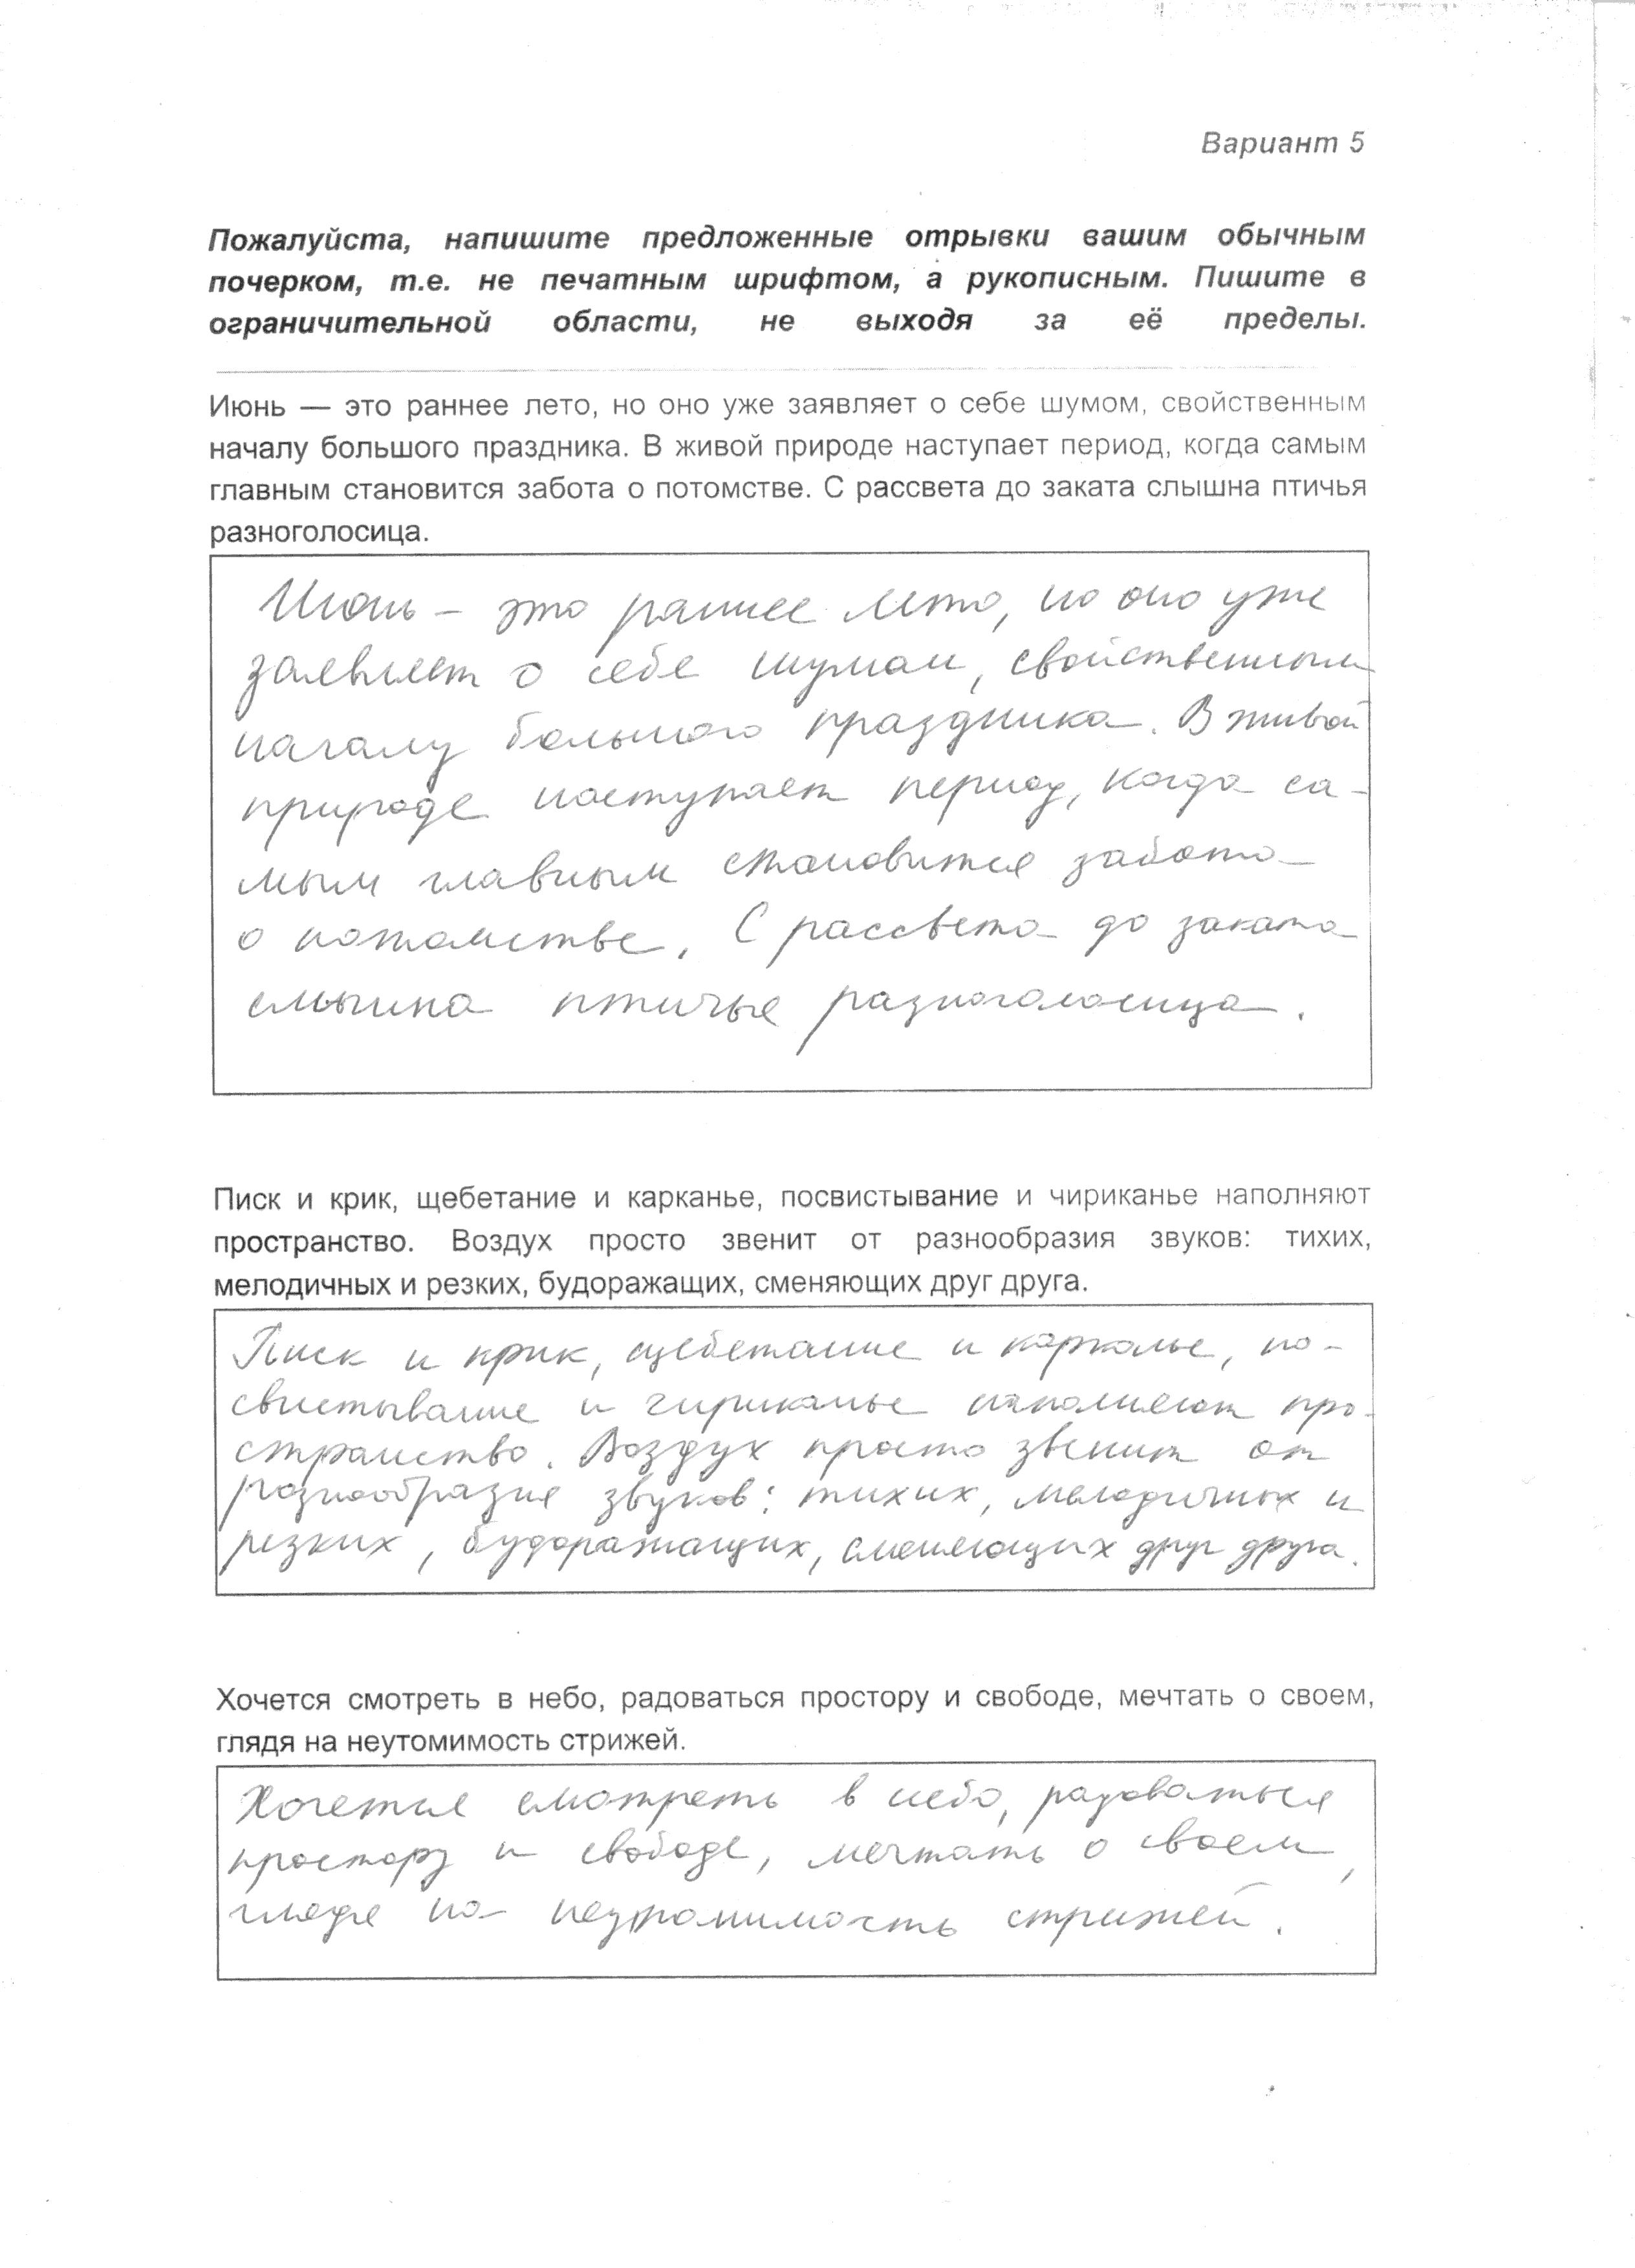 Вариант 5
Пожалуйста, напишите предложенные отрывки вашим обычным
почерком, т.е. не печатным шрифтом, а рукописным. Пишите в
ограничительной области, не выходя за её пределы.
Июнь — это раннее лето, но оно уже заявляет о себе шумом, свойственным
началу большого праздника. В живой природе наступает период, когда самым
главным становится забота о потомстве. С рассвета до заката слышна птичья
разноголосица.
Июнь – это раннее лето, но оно уже
заявляет о себе шумом, свойственным
началу большого праздника. В живой
природе наступает период, когда са-
мым главным становится забота
о потомстве. С рассвета до заката
слышна птичья разноголосица.
Писк и крик, щебетание и карканье, посвистывание и чириканье наполняют
пространство. Воздух просто звенит от разнообразия звуков: тихих,
мелодичных и резких, будоражащих, сменяющих друг друга.
Писк и крик, щебетание и карканье, по-
свистывание и чириканье наполняют про-
странство. Воздух просто звенит от
разнообразия звуков: тихих, мелодичных и
резких, будоражащих, сменяющих друг друга.
Хочется смотреть в небо, радоваться простору и свободе, мечтать о своем,
глядя на неутомимость стрижей.
Хочется смотреть в небо, радоваться
простору и свободе, мечтать о своем,
глядя на неутомимость стрижей.